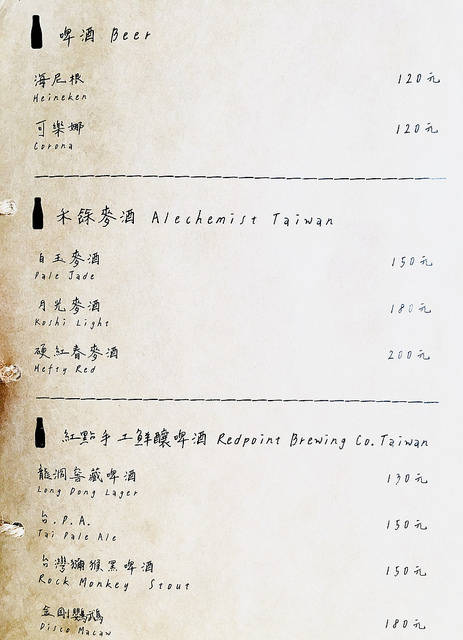 啤酒 Beer
海尼根 120元
Heineken
可樂娜 120元
Corona
禾餘麥酒 Alechemist Taiwan
白玉麥酒 150元
Pale Jade
月光麥酒 180元
Koshi Light
硬紅春麥酒 200元
Hefty Red
紅點手工鮮釀啤酒 Redpoint Brewing Co. Taiwan
龍洞窖藏啤酒 130元
Long Dong Lager
台.P.A. 150元
Tai Pale Ale
台灣獼猴黑啤酒 150元
Rock Monkey Stout
金剛鸚鵡 180元
Disco Macaw